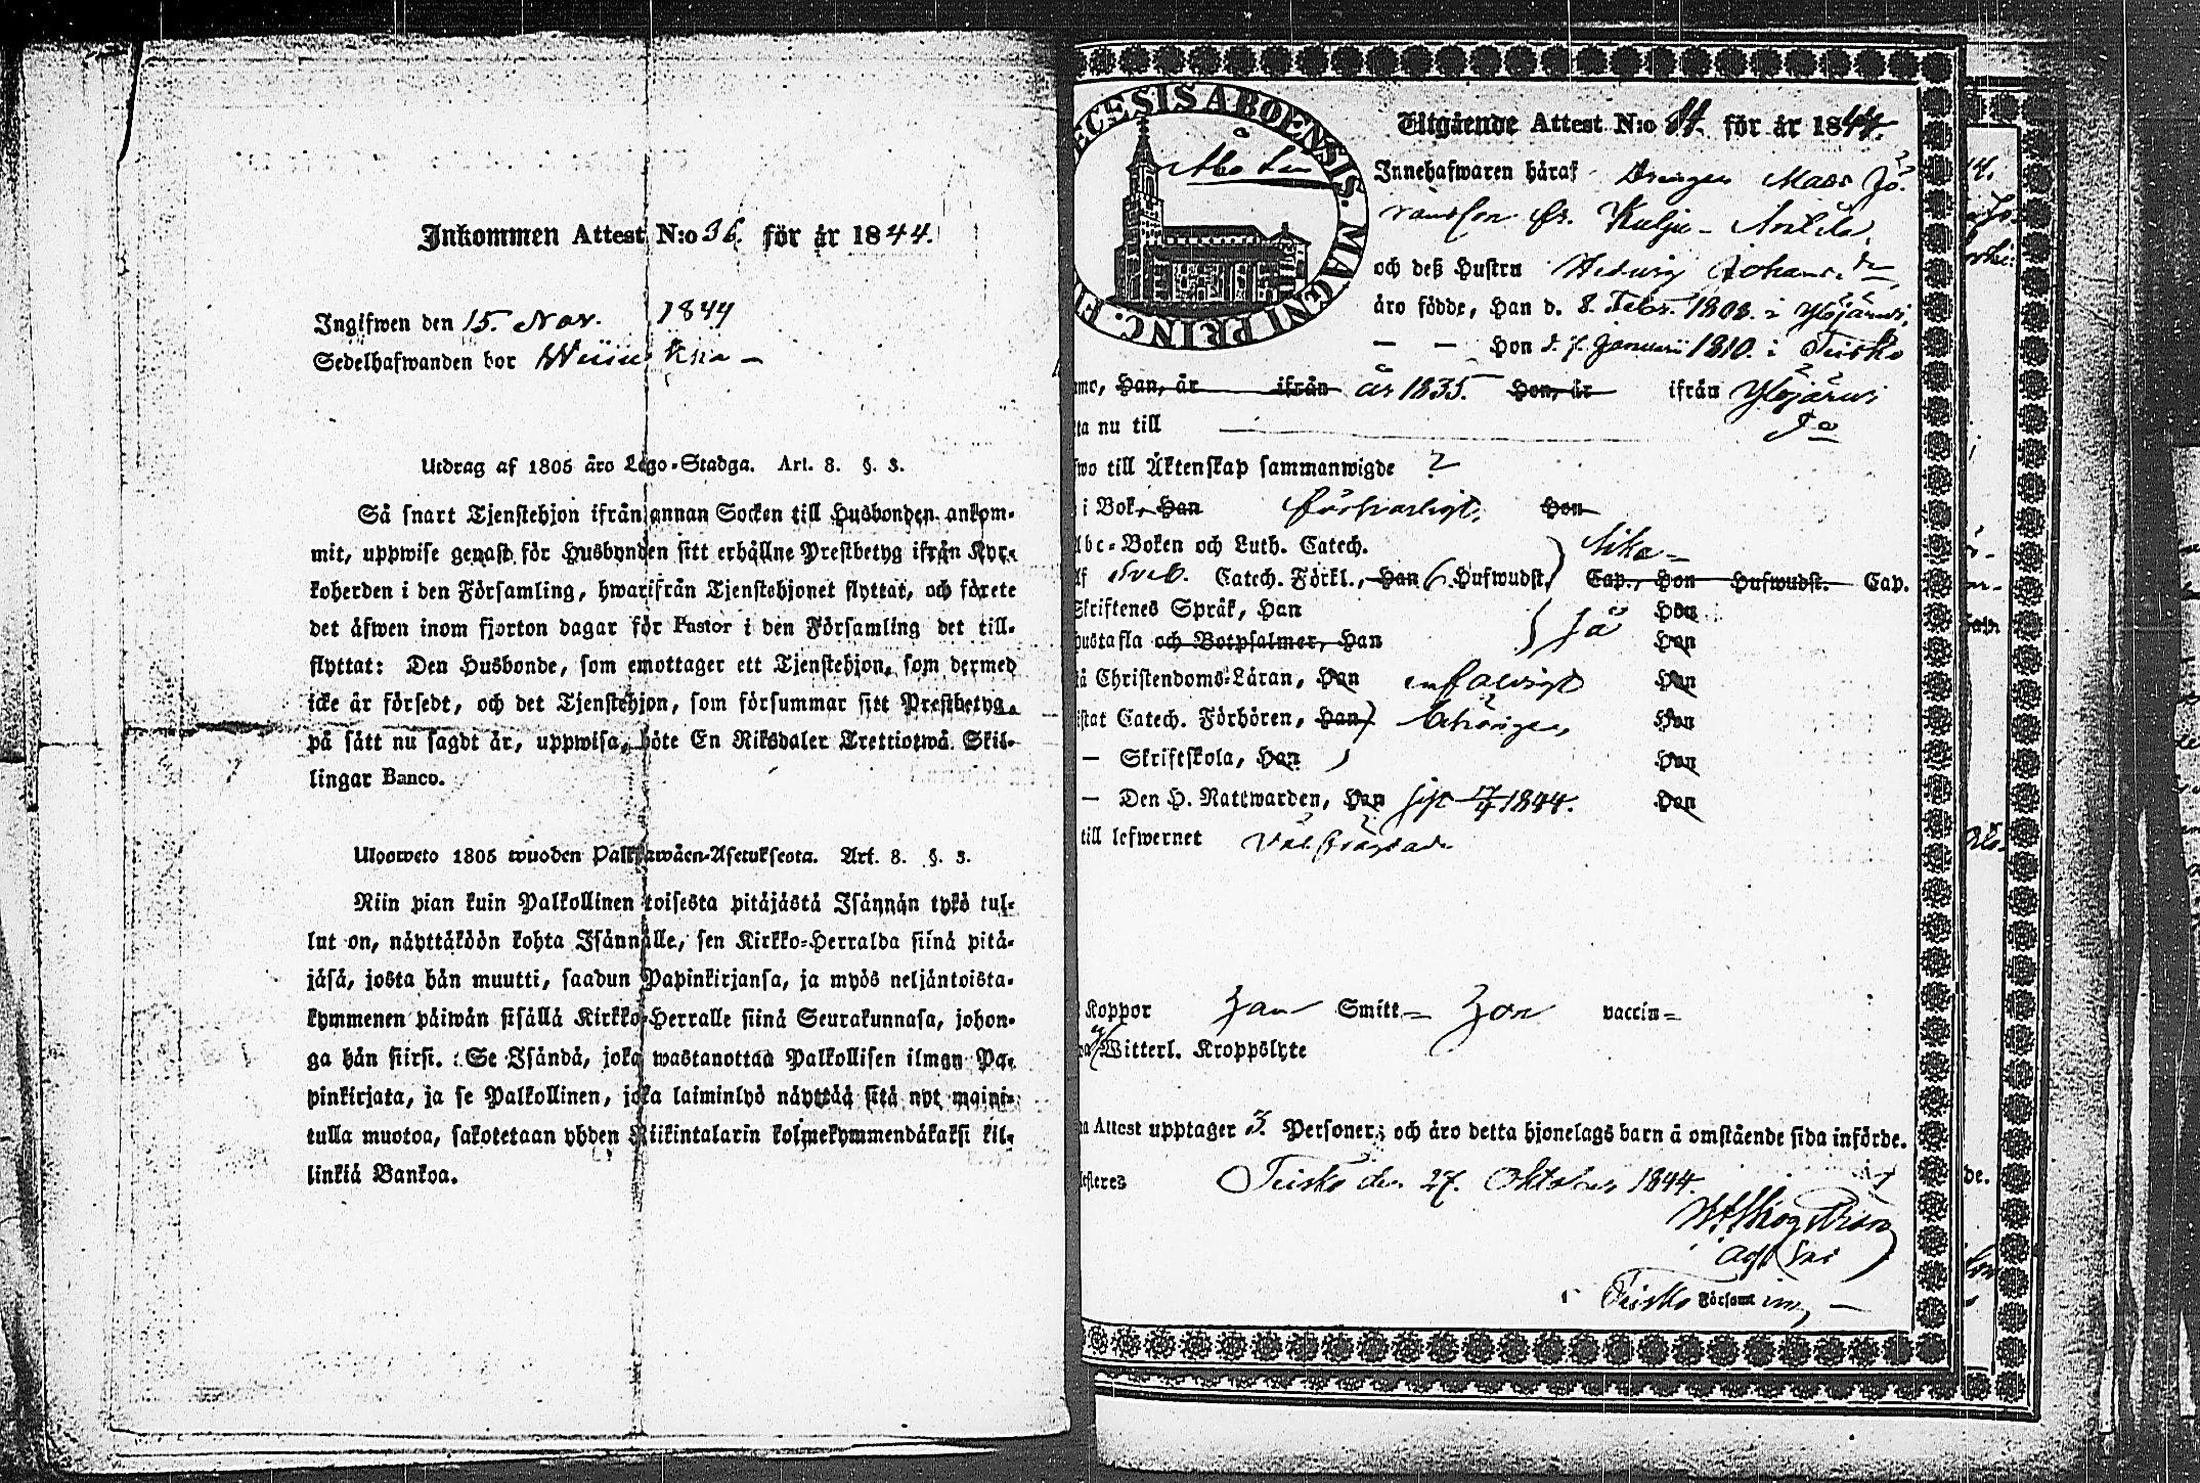 Inkommen Attest N:o 36. för år 1844.
Ingifwen den 15. Nov. 1844
Sedelhafwanden bor
Utdrag af 1805 åro Lego-Stadga. Art. 8. §. 3.
Så snart Tjenstehjon ifrån annan Socken till Husbonden ankom-
mit, uppwise genast för Husbonden sitt erhållne Prestbetyg ifrån Kyr-
koherden i den Församling, hwarifrån Tjenstehjonet flyttat, och förete
det äfwen inom fjorton dagar för Pastor i den Församling det till-
flyttat: Den Husbonde, som emottager ett Tjenstehjon, som dermed
icke är försedt, och det Tjenstehjon, som försummar sitt Prestbetyg,
på sätt nu sagdt är, uppwisa, böte En Riksdaler Trettiotwå Skil-
lingar Banco.
Ulosweto 1805 wuoden Palkkawäen-Asetuksesta. Art. 8. §. 3.
Niin pian kuin Palkollinen toisesta pitäjästä Isännän tykö tul-
lut on, näyttäköön kohta Isännälle, sen Kirkko-Herralda siinä pitä-
jäsä, josta hän muutti, saadun Papinkirjansa, ja myös neljäntoista-
kymmenen päiwän sisällä Kirkko-Herralle siinä Seurakunnasa, johon-
ga hän siirsi. Se Isändä, joka wastanottaa Palkollisen ilman Pa-
pinkirjata, ja se Palkollinen, joka laiminlyö näyttää sitä nyt maini-
tulla muotoa, sakotetaan yhden Riikintalarin kolmekymmendäkaksi kil-
linkiä Bankoa.
ECESIS ABOENSIS. MAGNI PRINC. F
Åbo Län
Utgående Attest N:o 44. för år 1844.
Innehafwaren häraf Drängen Mats Jö-
ransson fr. Kulju-Anttila
och deß Hustru Hedwig Johans dr
äro födde, Han d. 8. Febr. 1808. i Ylöjärwi,
— — Hon d. 7. Januarii 1810. i Teisko
mo, Han, år ifrån år 1835. Hon, år ifrån Ylöjärwi
ta nu till
wo till Äktenskap sammanwigde 2
i Bok, Han försvarligt. Hon
Abc-Boken och Luth. Catech.
Af Sveb. Catech. Förkl., Han Hufwudst. Cap., Hon Hufwudst. Cap.
Skriftenes Språk, Han Hon
hustafla och Botpsalmer, Han Jä Hon
å Christendoms-Läran, Han enfaldigt Hon
istat Catech. Förhören, Han Hon
— Skriftskola, Han Hon
— Den H. Nattwarden, Han sist 1844. Hon
till lefwernet Väl frägdade
Koppor Smitt- vaccin-
Witterl. Kroppslyte
Attest upptager 3. Personer; och äro detta hjonelags barn å omstående sida införde.
esteres Teisko den 27. Oktober 1844.
i Teisko Församling